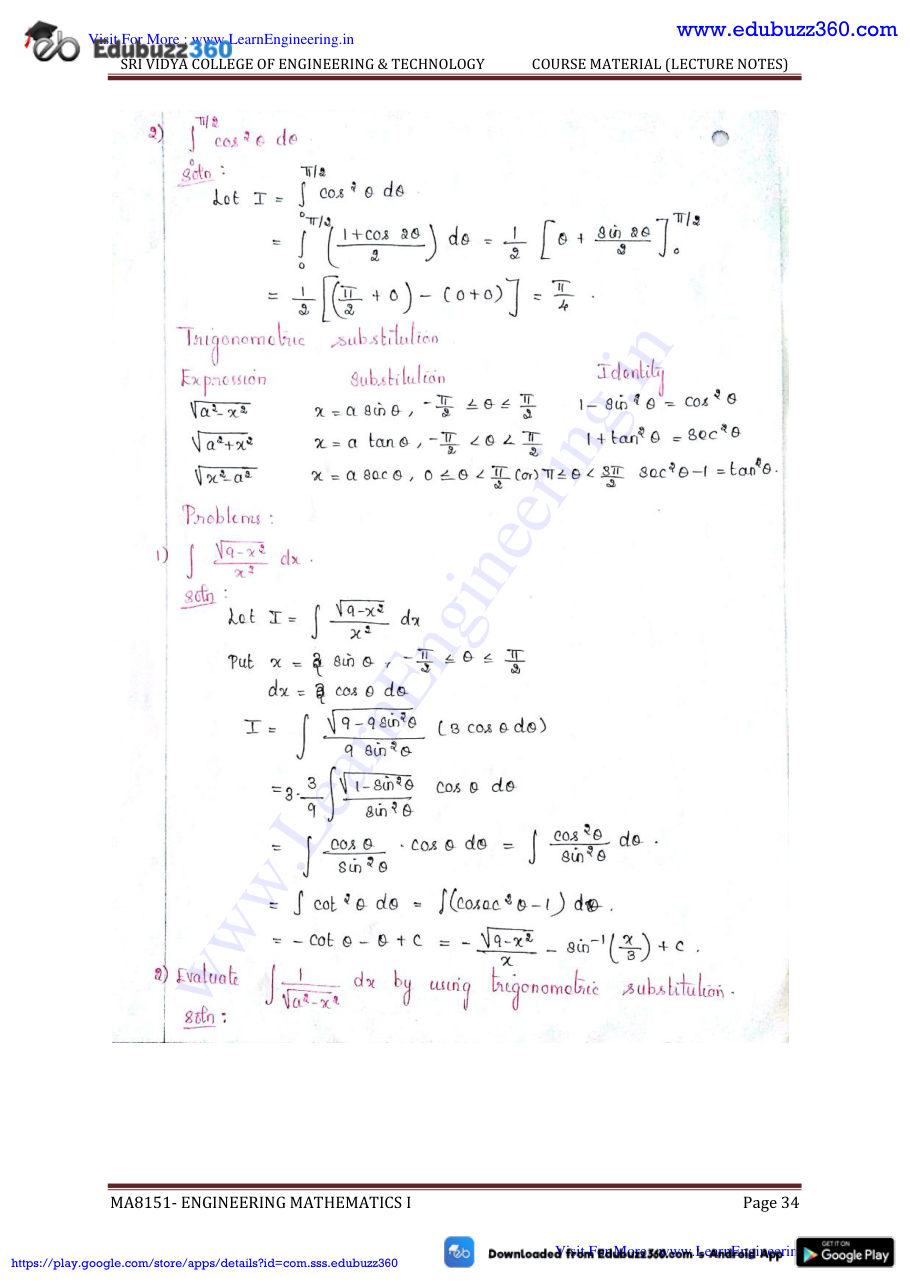 www.edubuzz360.com
Visit For More : www.LearnEngineering.in
Edubuzz360
SRI VIDYA COLLEGE OF ENGINEERING & TECHNOLOGY COURSE MATERIAL (LECTURE NOTES)
2) ∫₀^π/2 cos² θ dθ.
Soln :
Let I = ∫₀^π/2 cos² θ dθ.
= ∫₀^π/2 ((1+cos 2θ)/2) dθ = 1/2 [θ + (sin 2θ)/2]₀^π/2
= 1/2 [(π/2 + 0) - (0+0)] = π/4 .
Trigonometric substitution
Expression Substitution Identity
√(a²-x²) x = a sin θ, -π/2 ≤ θ ≤ π/2 1 - sin² θ = cos² θ
√(a²+x²) x = a tan θ, -π/2 < θ < π/2 1 + tan² θ = sec² θ
√(x²-a²) x = a sec θ, 0 ≤ θ < π/2 (or) π ≤ θ < 3π/2 sec² θ - 1 = tan² θ.
Problems :
1) ∫ √(9-x²)/x² dx .
Soln :
Let I = ∫ √(9-x²)/x² dx
Put x = 3 sin θ, -π/2 ≤ θ ≤ π/2
dx = 3 cos θ dθ
I = ∫ √(9-9 sin² θ)/(9 sin² θ) (3 cos θ dθ)
= 3·3/9 ∫ √(1-sin² θ)/(sin² θ) cos θ dθ
= ∫ cos θ/sin² θ · cos θ dθ = ∫ cos² θ/sin² θ dθ .
= ∫ cot² θ dθ = ∫(cosec² θ - 1) dθ.
= - cot θ - θ + c = - √(9-x²)/x - sin⁻¹(x/3) + c .
2) Evaluate ∫ 1/√(a²-x²) dx by using trigonometric substitution.
Soln :
www.LearnEngineering.in
MA8151- ENGINEERING MATHEMATICS I Page 34
Downloaded from Edubuzz360.com's Android App
Visit For More : www.LearnEngineerin
GET IT ON
Google Play
https://play.google.com/store/apps/details?id=com.sss.edubuzz360